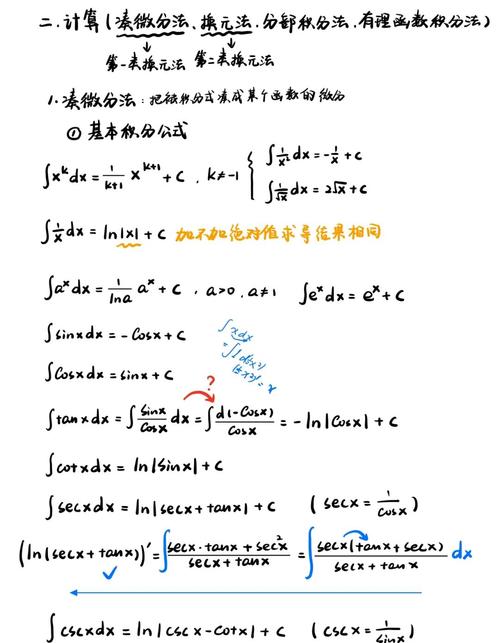 二.计算(凑微分法、换元法.分部积分法.有理函数积分法)
第一类换元法 第二类换元法
1.凑微分法:把被积分式凑成某个函数的微分
① 基本积分公式
∫x^k dx = 1/(k+1) x^(k+1) + C . k≠-1 { ∫1/x² dx = -1/x + C
∫1/√x dx = 2√x + C
∫1/x dx = ln|x| + C 加不加绝对值求导结果相同
∫a^x dx = 1/lna a^x + C , a>0, a≠1 ∫e^x dx = e^x + C
∫sinx dx = -Cosx + C
∫Cosx dx = sinx + C
∫x dx
?
∫tanx dx = ∫ Sinx/Cosx dx = ∫ d(-Cosx)/Cosx = -ln|Cosx| + C
∫cotx dx = ln|Sinx| + C
∫secx dx = ln|secx + tanx| + C (secx = 1/Cosx)
(ln|secx + tanx|)' = ∫ (secx·tanx + sec²x)/(secx + tanx) = ∫ secx(tanx + secx)/(secx + tanx) dx
∫cscx dx = ln|cscx - Cotx| + C (cscx = 1/Sinx)